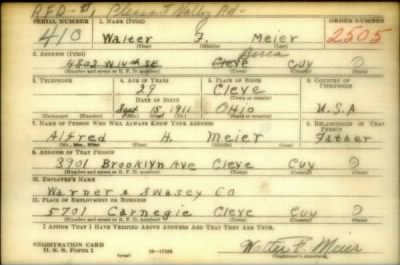 RFD-#1 Pleasant Valley Rd-
SERIAL NUMBER 1. NAME (Print) ORDER NUMBER
410 Walter F. Meier 2505
(First) (Middle) (Last)
2. ADDRESS (Print) Berea
4802 W 14th St. Cleve Cuy O
(Number and street or R. F. D. number) (Town) (County) (State)
3. TELEPHONE 4. AGE IN YEARS 5. PLACE OF BIRTH 6. COUNTRY OF CITIZENSHIP
29 Cleve
DATE OF BIRTH (Town or county)
15 1911 Ohio U.S.A
(Mo.) (Day) (Yr.) (State or country)
7. NAME OF PERSON WHO WILL ALWAYS KNOW YOUR ADDRESS 8. RELATIONSHIP OF THAT PERSON
Alfred H. Meier Father
(Mr., Mrs., Miss) (First) (Middle) (Last)
9. ADDRESS OF THAT PERSON
3901 Brooklyn Ave Cleve Cuy O
(Number and street or R. F. D. number) (Town) (County) (State)
10. EMPLOYER'S NAME
Warner & Swasey Co
11. PLACE OF EMPLOYMENT OR BUSINESS
5701 Carnegie Cleve Cuy O
(Number and street or R. F. D. number) (Town) (County) (State)
I AFFIRM THAT I HAVE VERIFIED ABOVE ANSWERS AND THAT THEY ARE TRUE.
REGISTRATION CARD
D. S. S. Form 1 Walter F. Meier